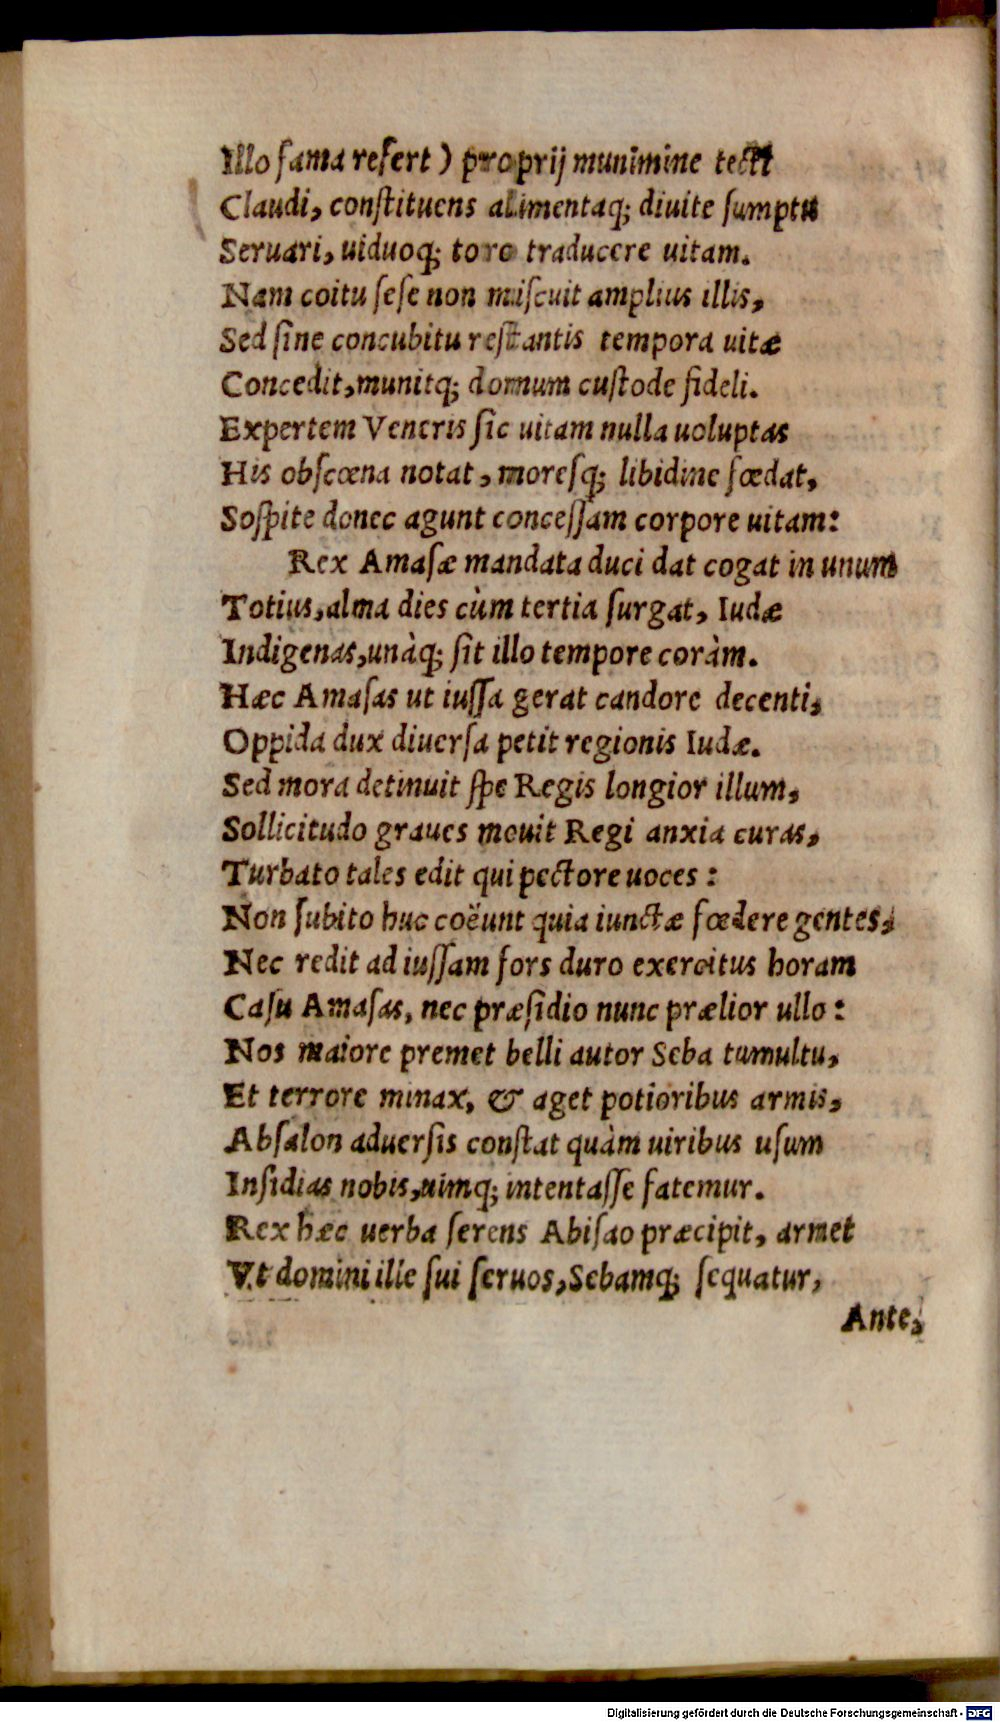 Illo fama refert) proprij munimine tecti
Claudi, conſtituens alimentaq; diuite ſumptu
Seruari, uiduoq; toro traducere uitam.
Nam coitu ſeſe non miſcuit amplius illis,
Sed ſine concubitu reſtantis tempora uitæ
Concedit, munitq; domum cuſtode fideli.
Expertem Veneris ſic uitam nulla uoluptas
His obſcœna notat, moresq; libidine fœdat,
Soſpite donec agunt conceſſam corpore uitam:
Rex Amaſæ mandata duci dat cogat in unum
Totius, alma dies cùm tertia ſurgat, Iudæ
Indigenas, unàq; ſit illo tempore coràm.
Hæc Amaſas ut iuſſa gerat candore decenti,
Oppida dux diuerſa petit regionis Iudæ.
Sed mora detinuit ſpe Regis longior illum,
Sollicitudo graues mouit Regi anxia curas,
Turbato tales edit qui pectore uoces:
Non ſubito huc coëunt quia iunctæ fœdere gentes,
Nec redit ad iuſſam fors duro exercitus horam
Caſu Amaſas, nec præſidio nunc prælior ullo:
Nos maiore premet belli autor Seba tumultu,
Et terrore minax, & aget potioribus armis,
Abſalon aduerſis conſtat quàm uiribus uſum
Inſidias nobis, uimq; intentaſſe fatemur.
Rex hæc uerba ſerens Abiſao præcipit, armet
Vt domini ille ſui ſeruos, Sebamq; ſequatur,
Ante,
Digitalisierung gefördert durch die Deutsche Forschungsgemeinschaft - DFG